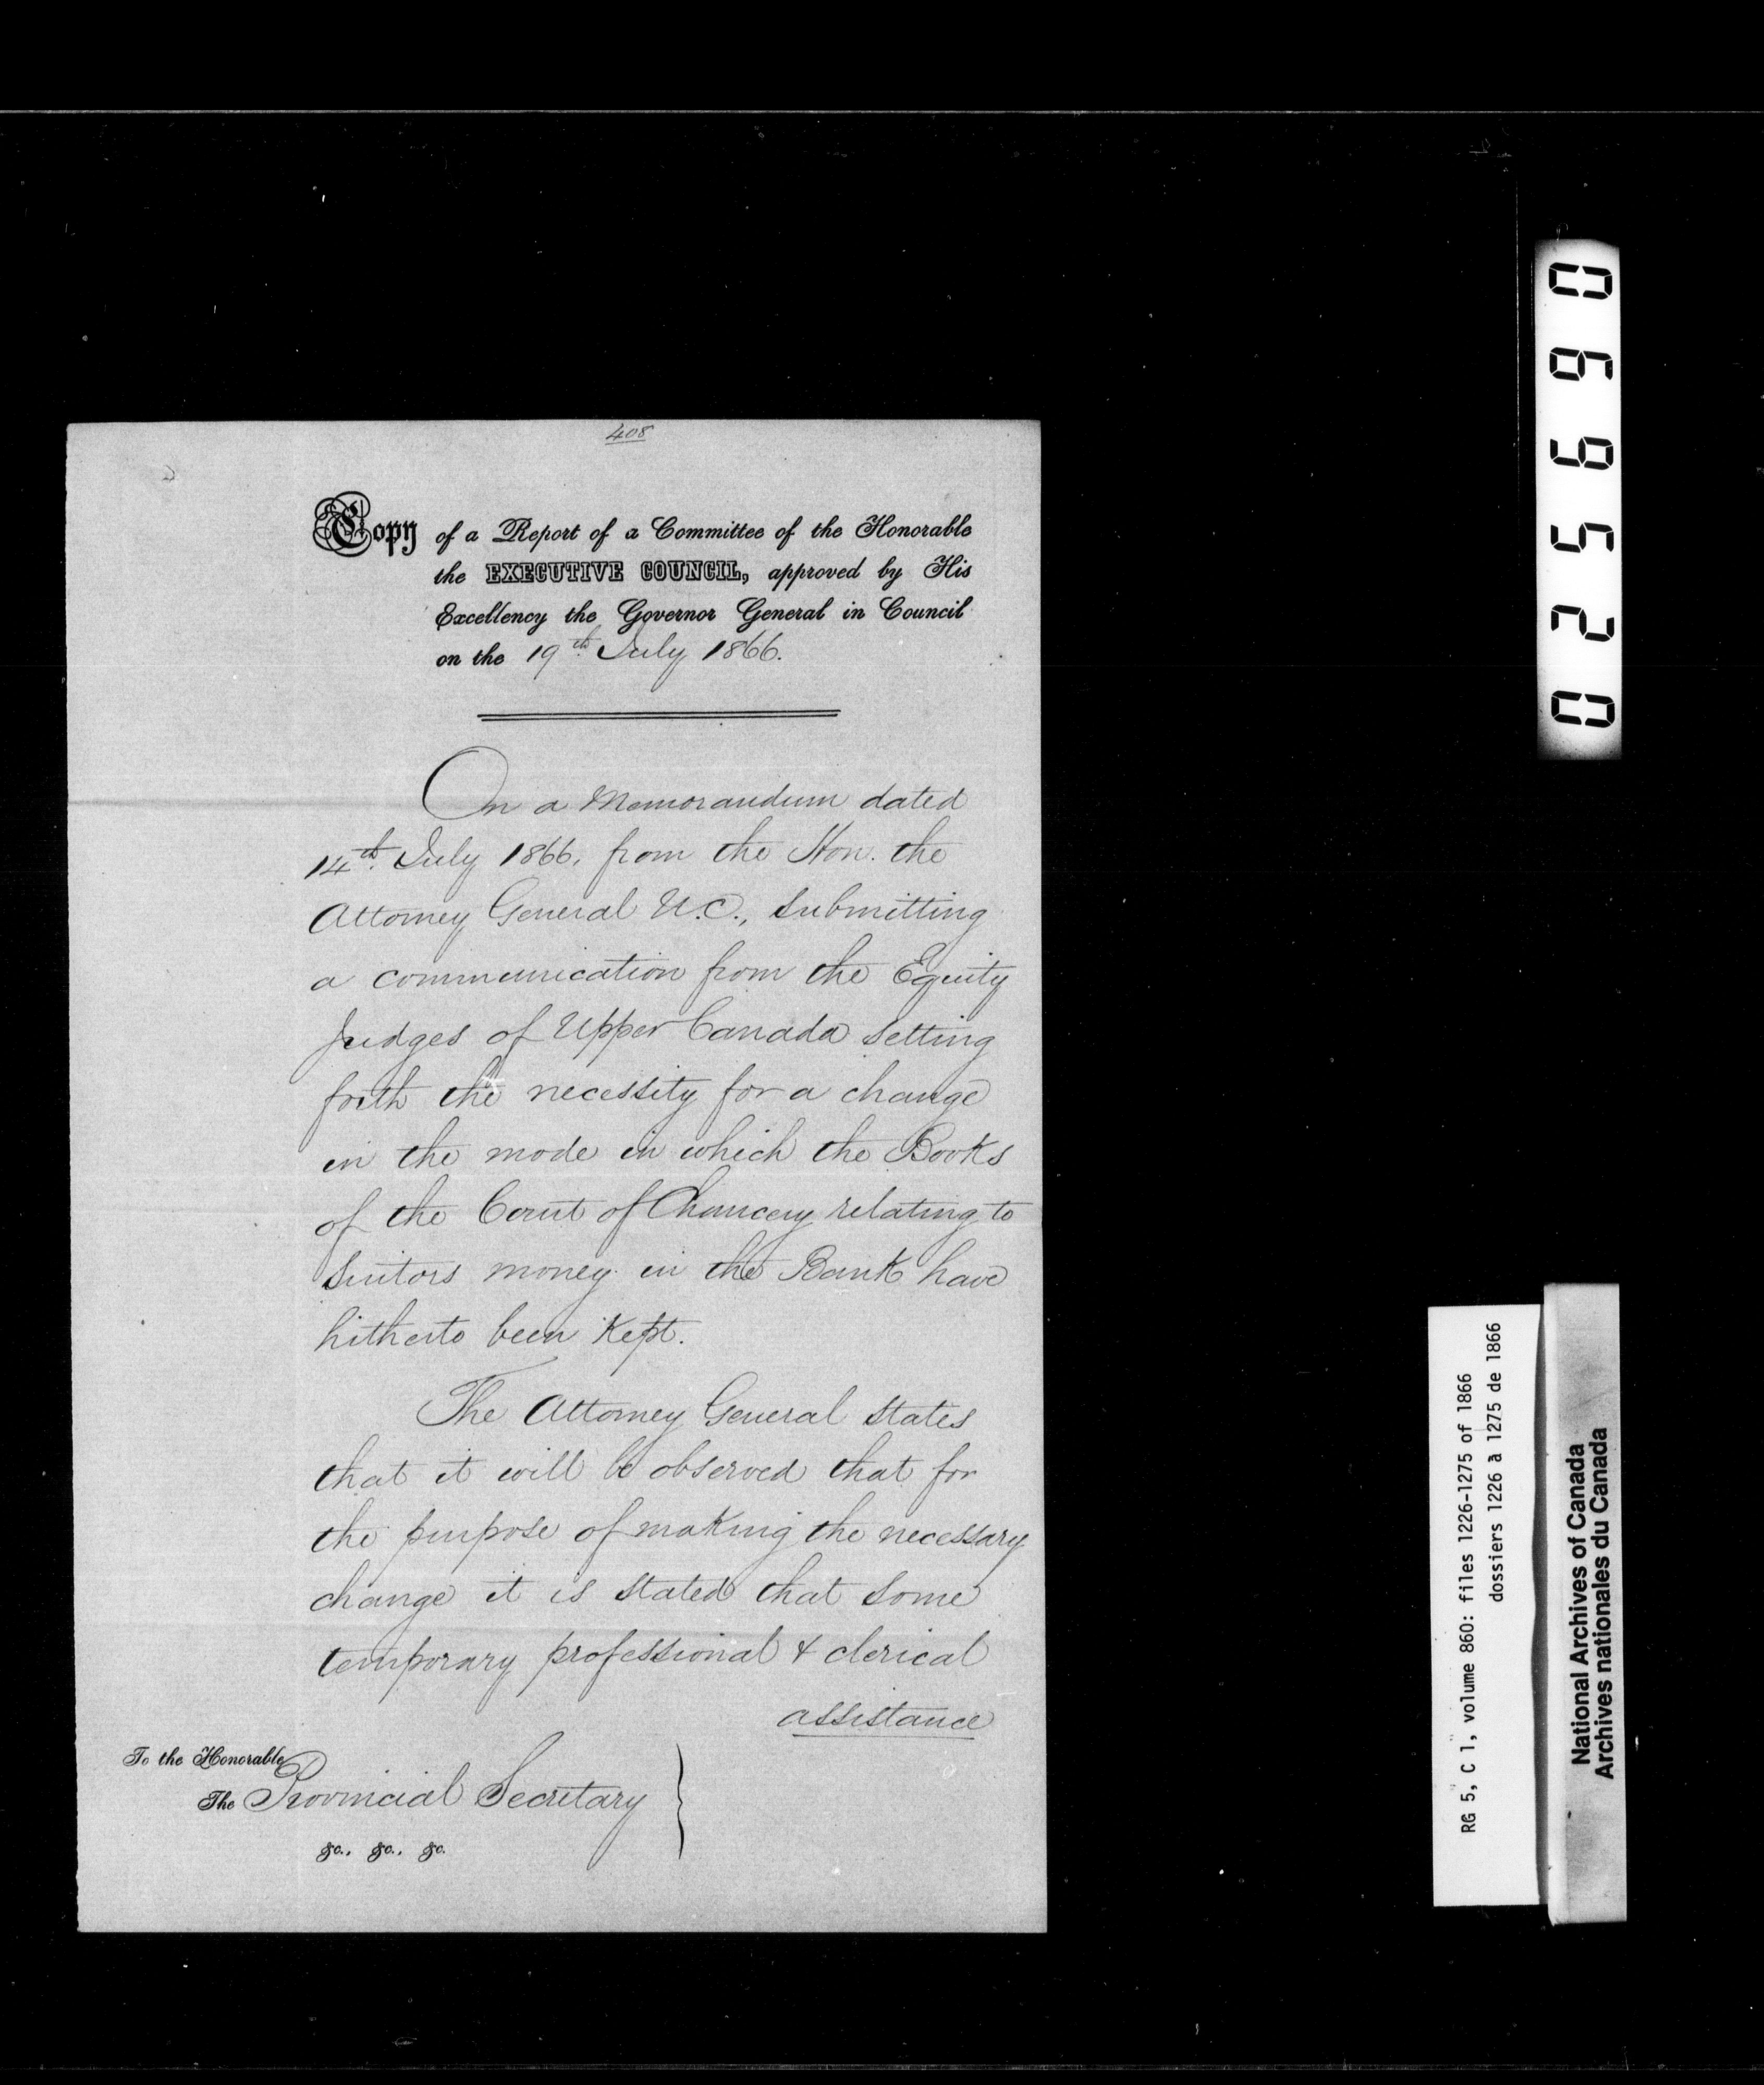 408
Copy of a Report of a Committee of the Honorable
the EXECUTIVE COUNCIL, approved by His
Excellency the Governor General in Council
on the 19th July 1866.
On a Memorandum dated
14th July 1866, from the Hon. the
Attorney General U.C., submitting
a communication from the Equity
Judges of Upper Canada setting
forth the necessity for a change
in the mode in which the Books
of the Court of Chancery relating to
Suitors money in the Bank have
hitherto been Kept.
The Attorney General states
that it will be observed that for
the purpose of making the necessary
change it is stated that some
temporary professional & clerical
assistance
To the Honorable
The Provincial Secretary
&c., &c., &c.
025690
RG 5, C 1, volume 860: files 1226-1275 of 1866
dossiers 1226 à 1275 de 1866
National Archives of Canada
Archives nationales du Canada